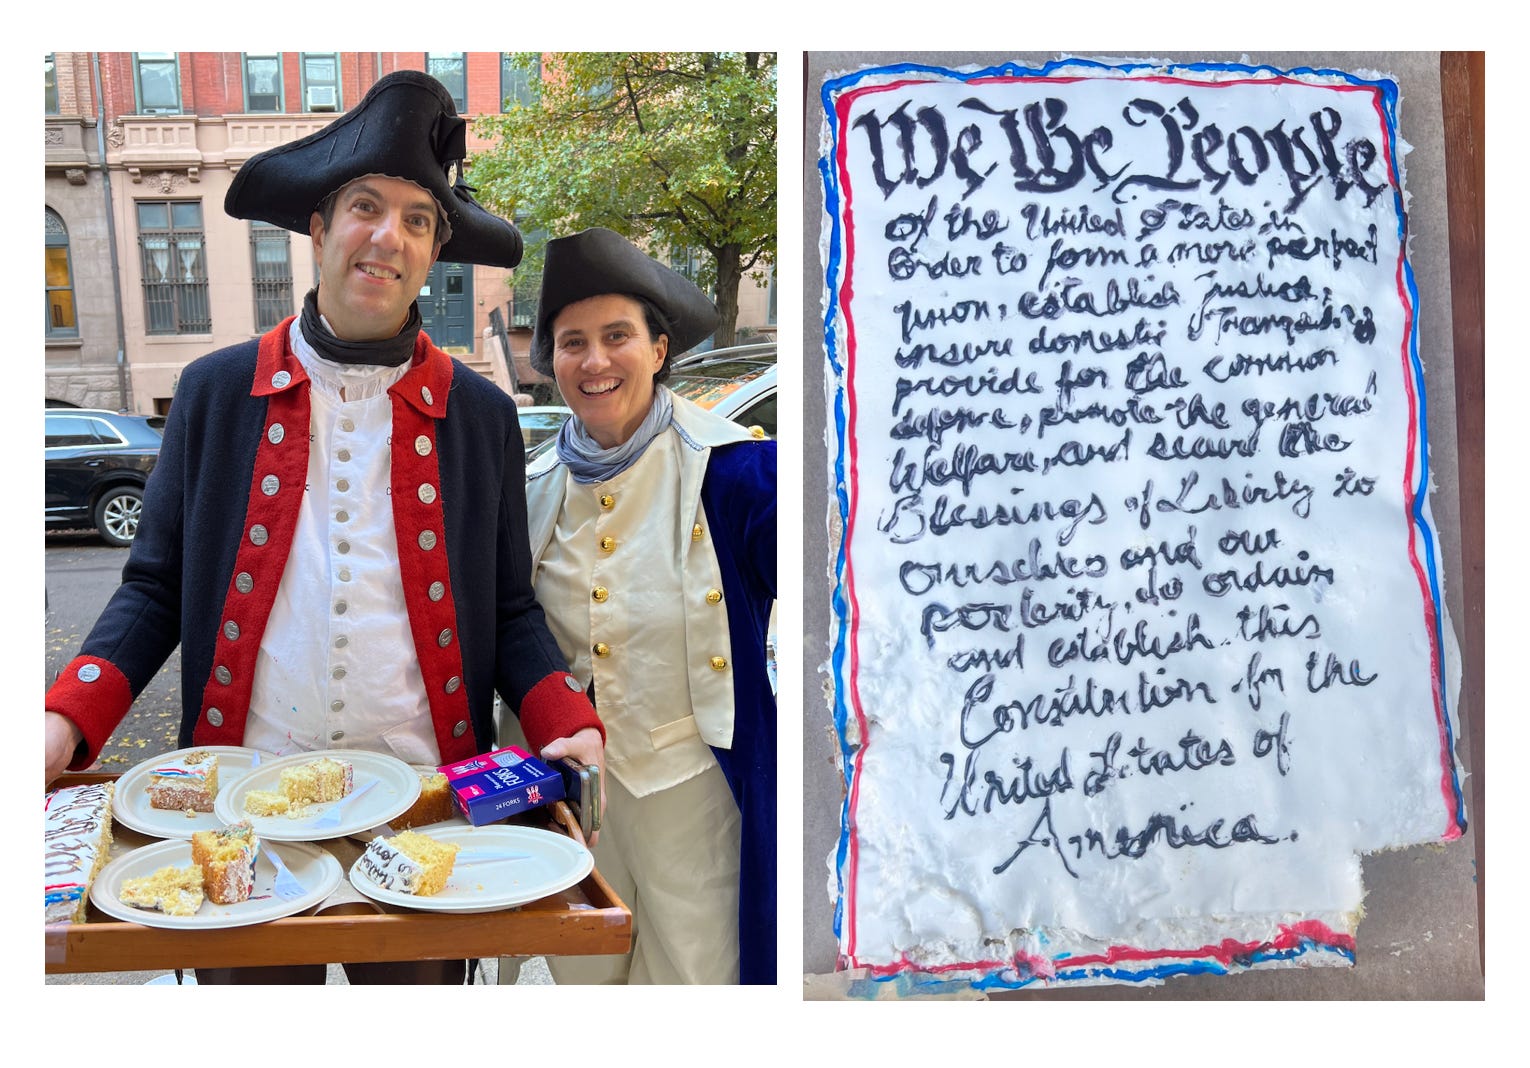 FORKS
24 FORKS
We the
We The People
of the United States in
Order to form a more perfect
union, establish justice,
insure domestic Tranquility
provide for the common
defence, promote the general
Welfare, and secure the
Blessings of Liberty to
ourselves and our
posterity, do ordain
and establish this
Constitution for the
United States of
America.